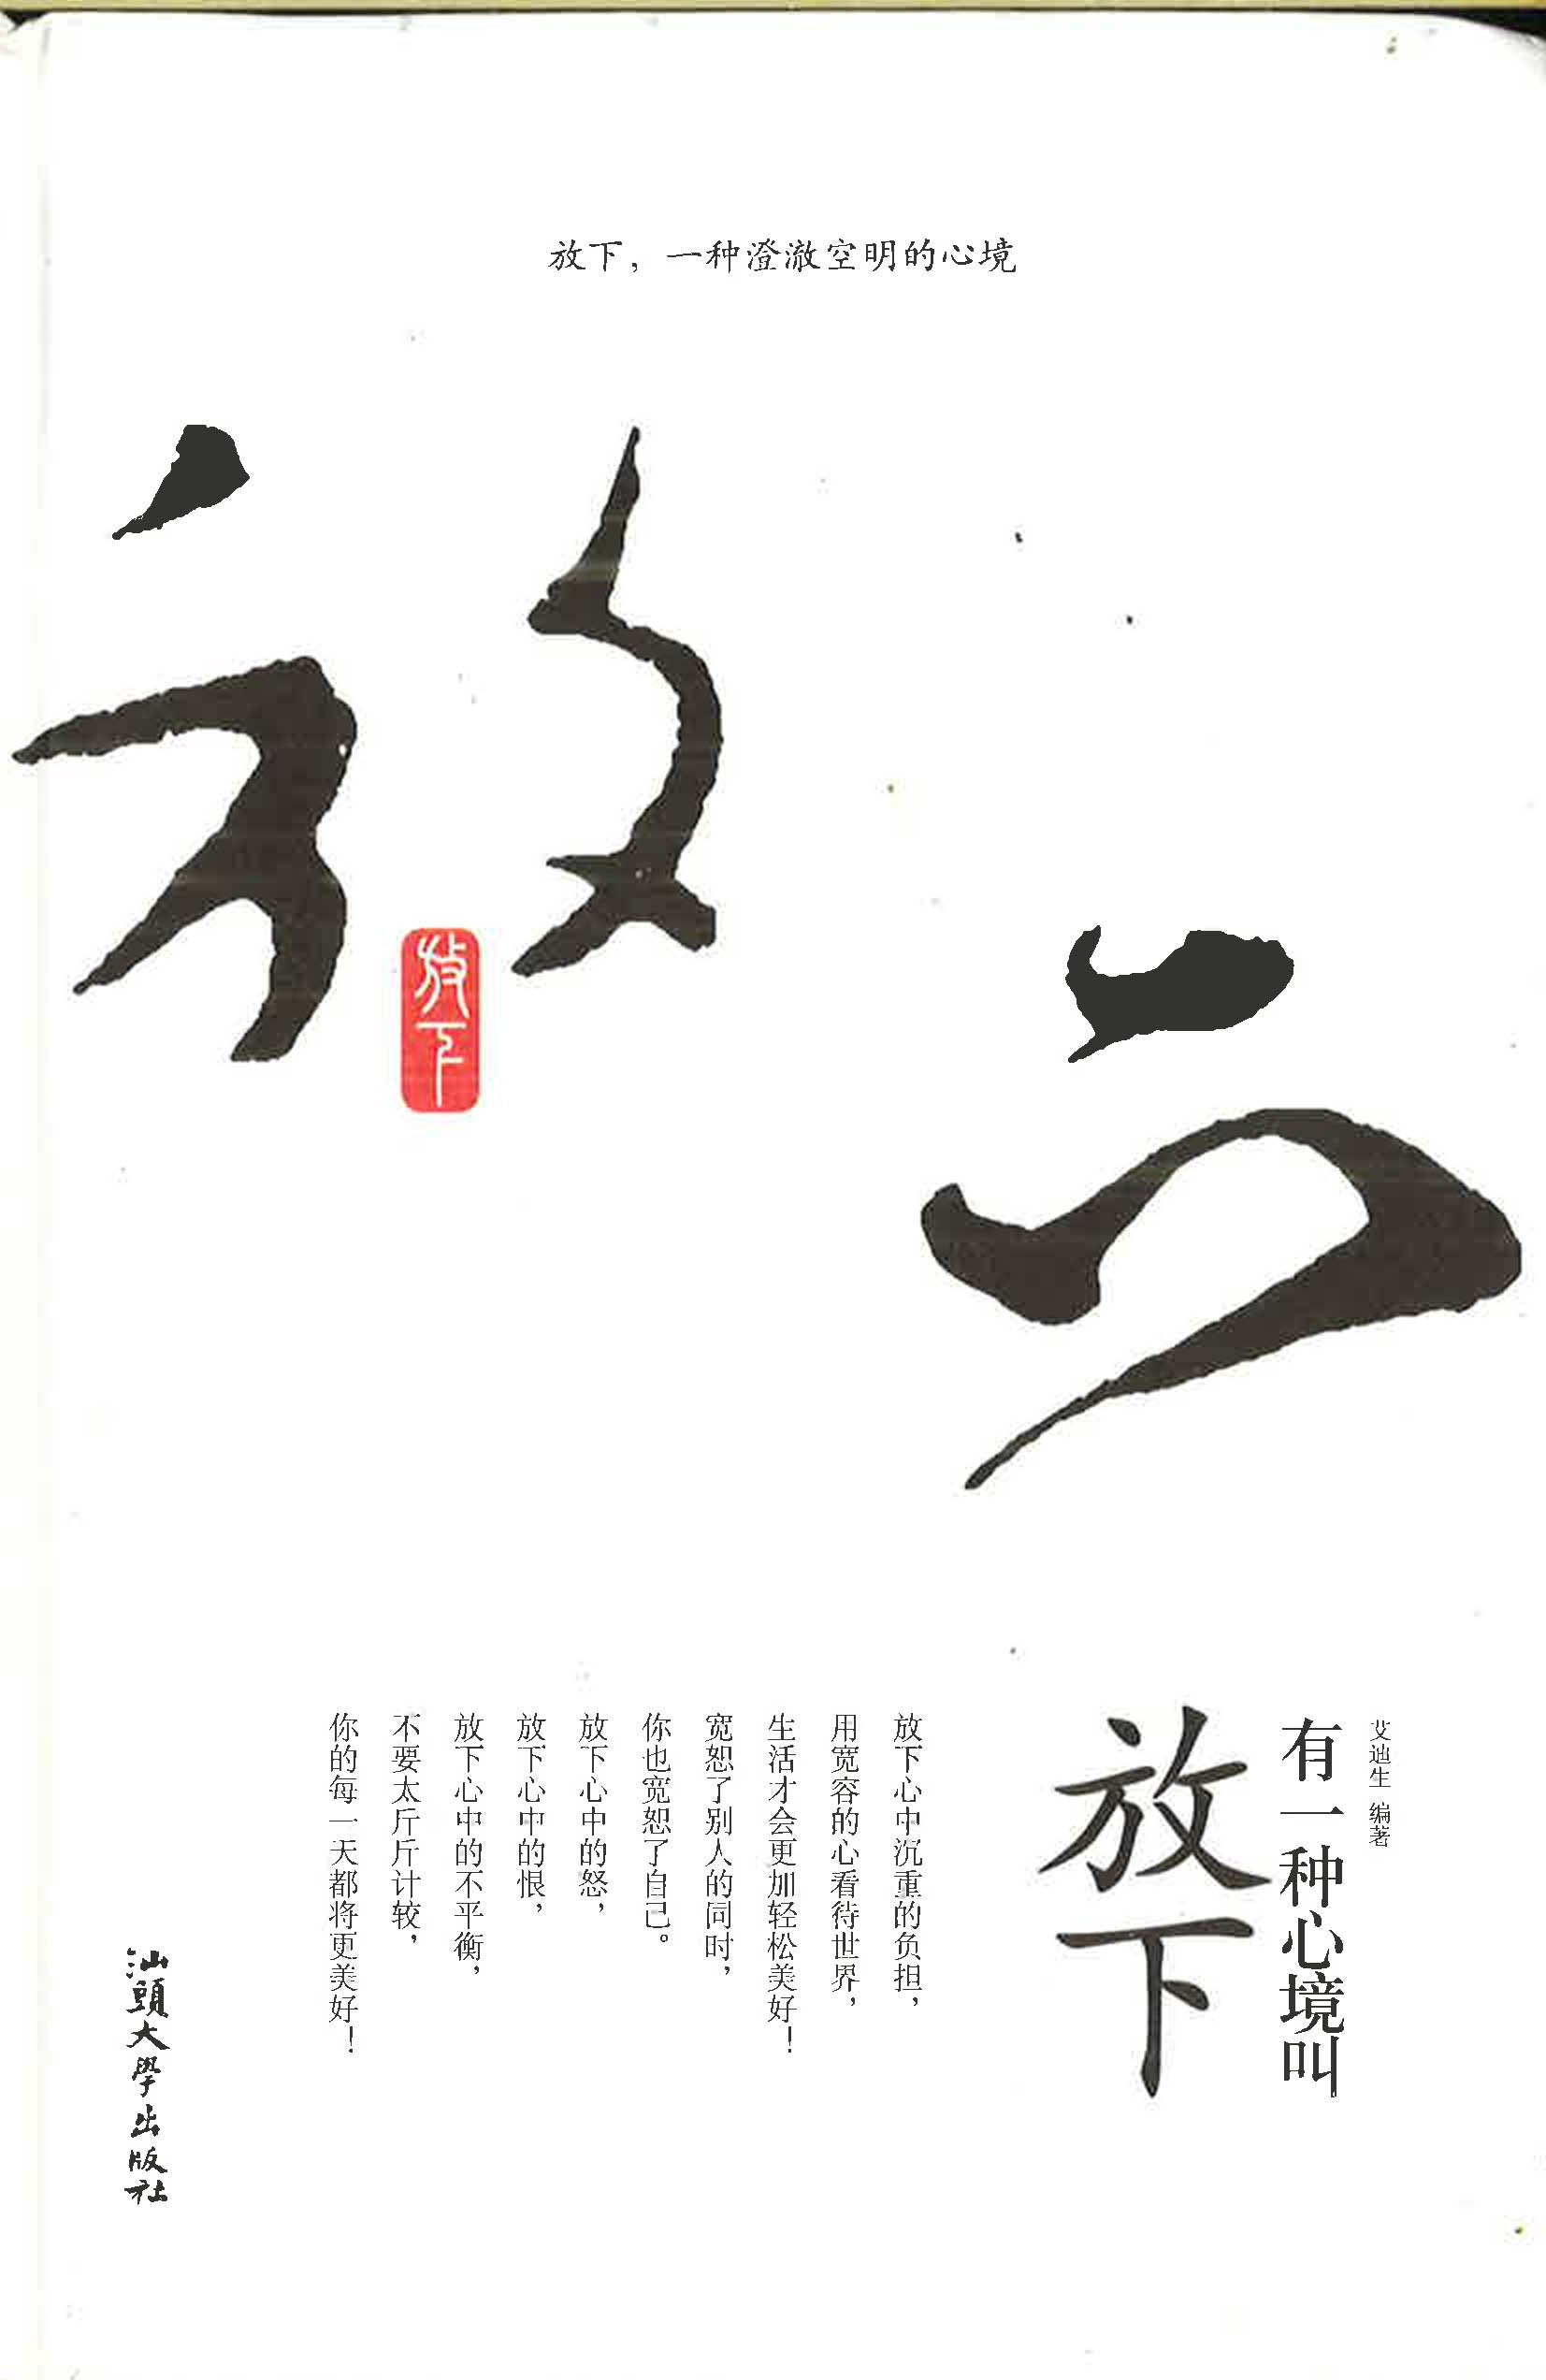 放下，一种澄澈空明的心境
放下
放下
艾迪生 编著
有一种心境叫
放下
放下心中沉重的负担，
用宽容的心看待世界，
生活才会更加轻松美好！
宽恕了别人的同时，
你也宽恕了自己。
放下心中的怒，
放下心中的恨，
放下心中的不平衡，
不要太斤斤计较，
你的每一天都将更美好！
汕頭大學出版社